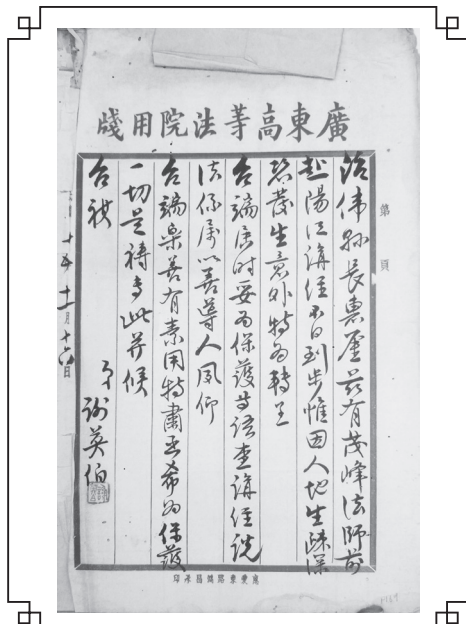 廣東高等法院用牋
第 頁
偉卿縣長惠鑒茲有茂峰法師前
赴陽江講經不日到步惟因人地生疎深
恐發生意外特為轉呈
台端屆時妥為保護等語查講經說
法係屬以善導人夙仰
台端樂善有素用特肅函希為保護
一切是禱專此并候
台祺
弟 謝英伯
十一月十六日